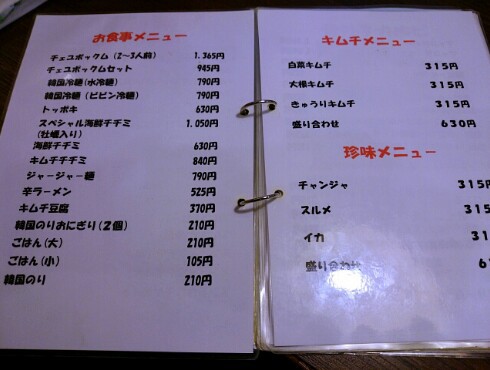 お食事メニュー
チェユポックム(2～3人前) 1.365円
チェユポックムセット 945円
韓国冷麺(水冷麺) 790円
韓国冷麺(ビビン冷麺) 790円
トッポキ 630円
スペシャル海鮮チヂミ 1.050円
(牡蠣入り)
海鮮チヂミ 630円
キムチチヂミ 840円
ジャージャー麺 790円
辛ラーメン 525円
キムチ豆腐 370円
韓国のりおにぎり(2個) 210円
ごはん(大) 210円
ごはん(小) 105円
韓国のり 210円
キムチメニュー
白菜キムチ 315円
大根キムチ 315円
きゅうりキムチ 315円
盛り合わせ 630円
珍味メニュー
チャンジャ 315円
スルメ 315
イカ 315
盛り合わせ